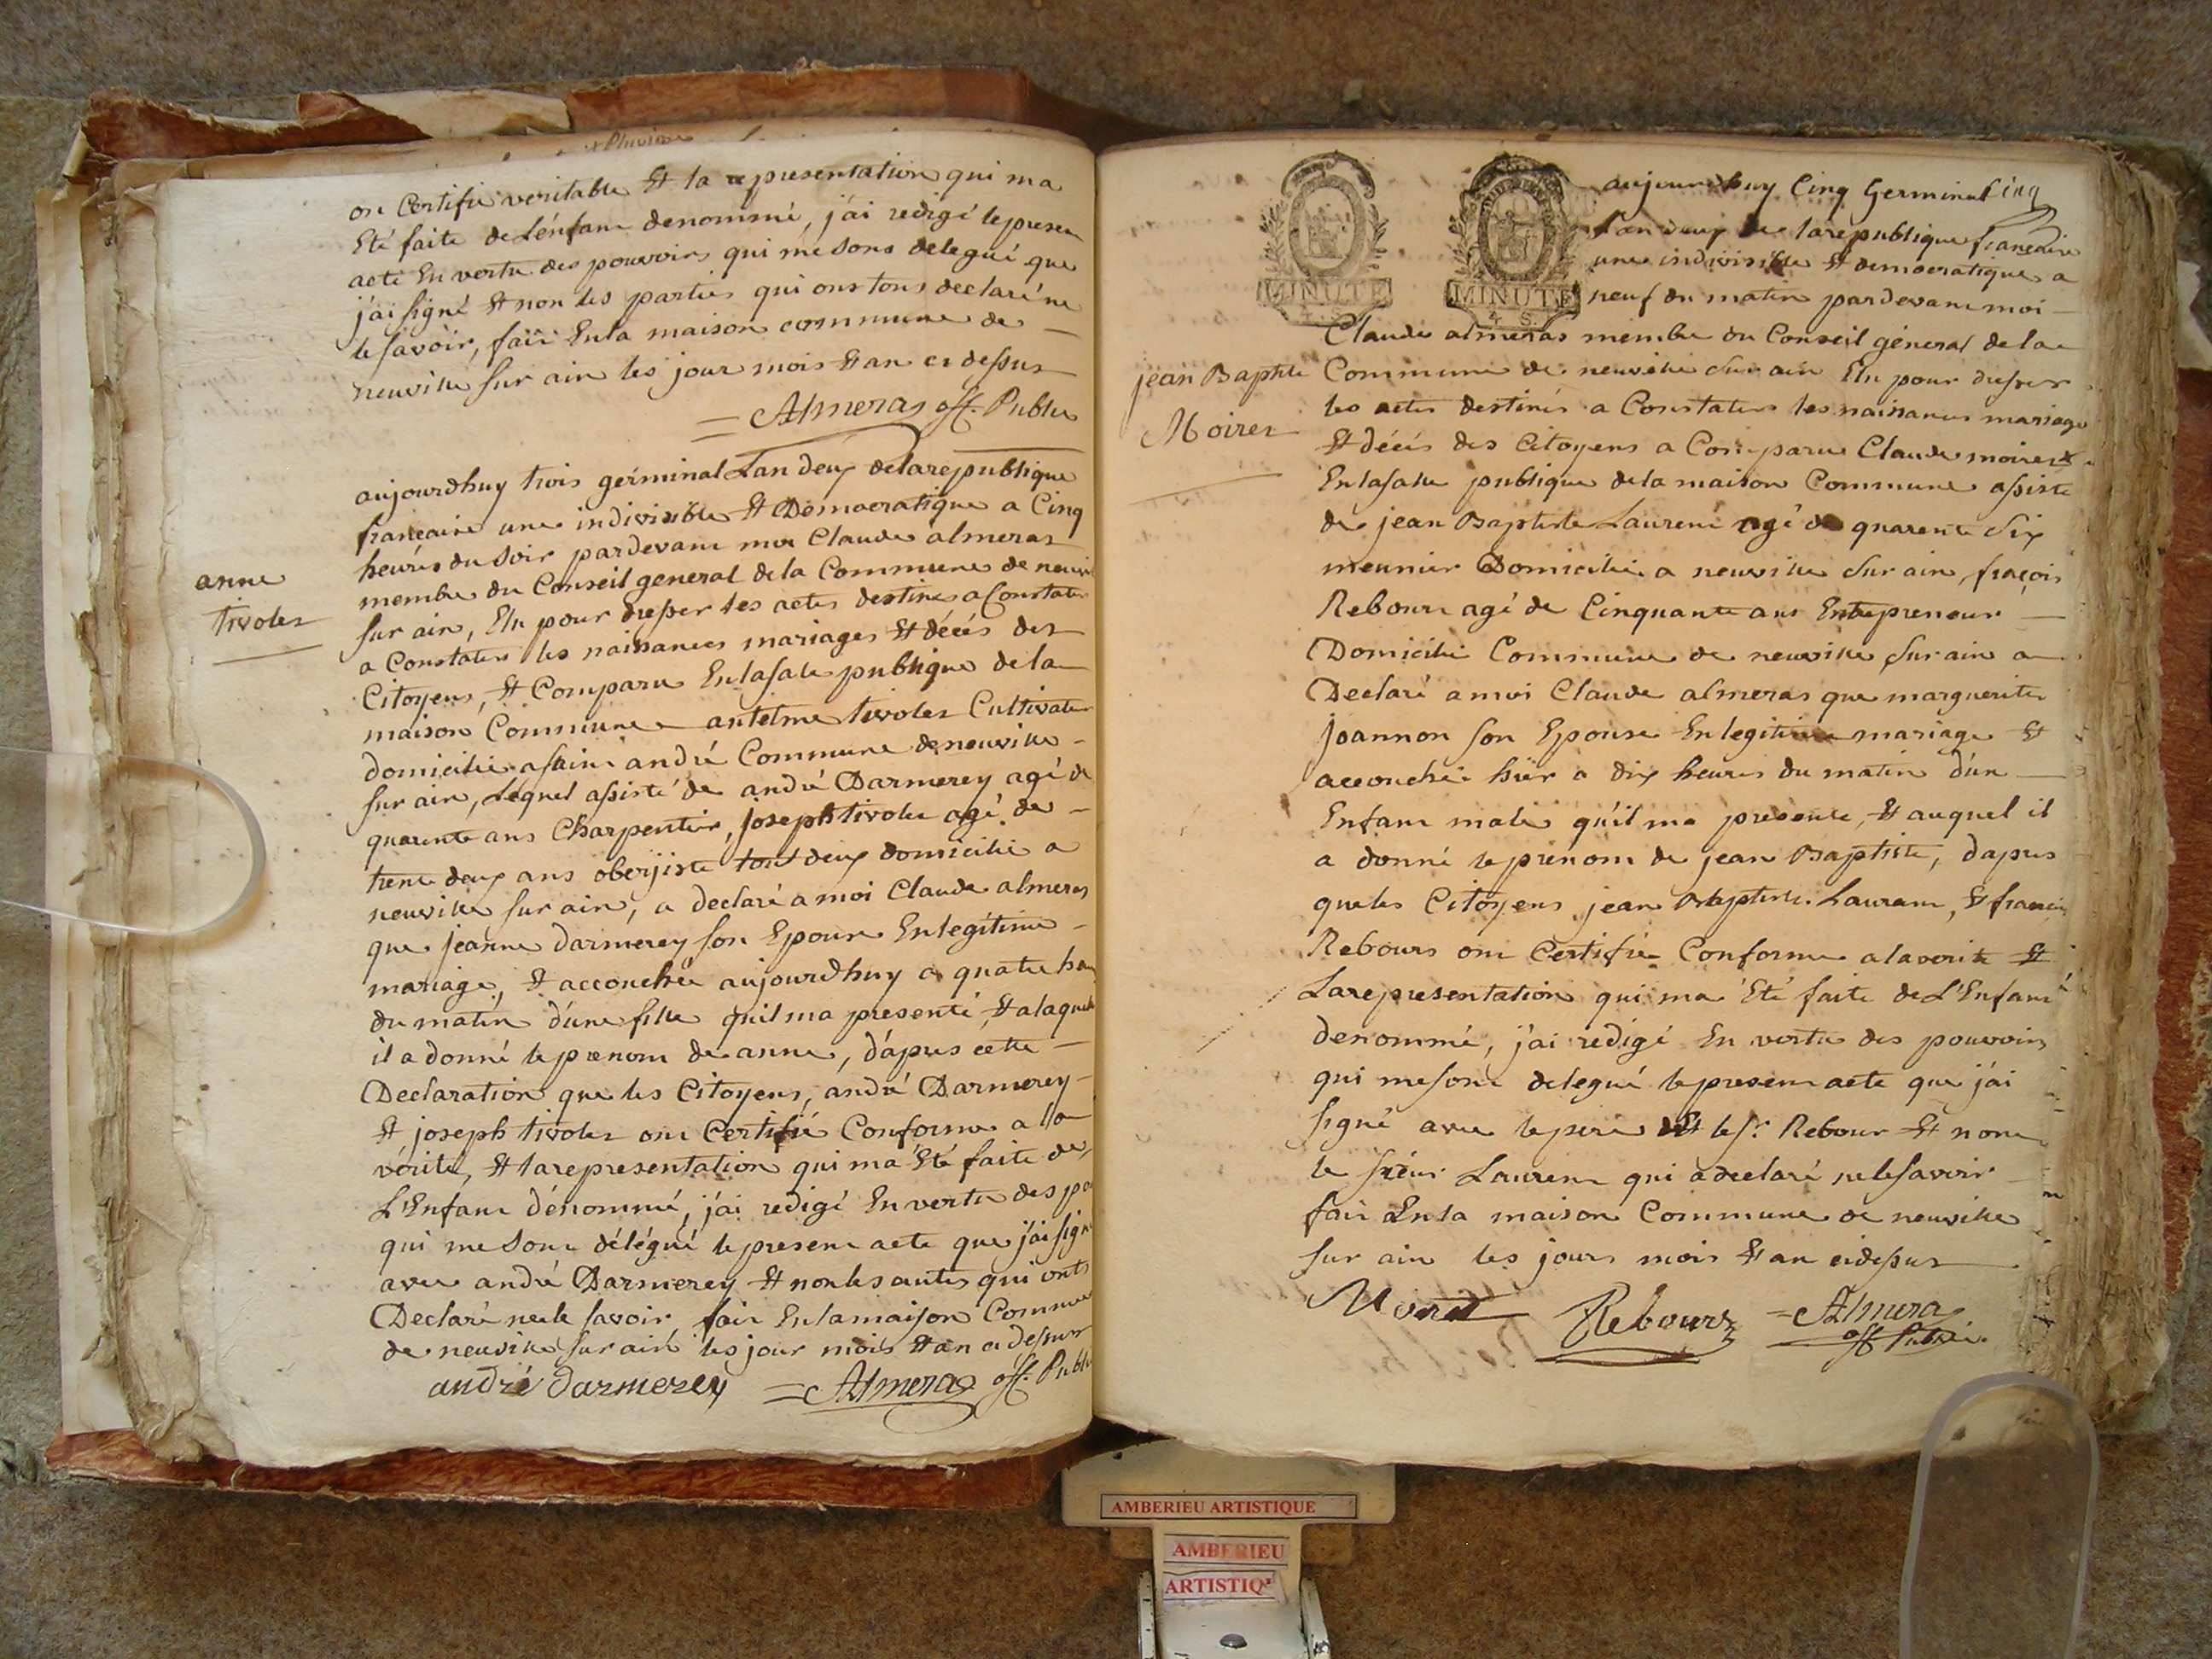 on Certifié veritable Et la representation qui ma
Eté faite de L'énfant denommé, j'ai redigé le presen
acte En vertu des pouvoirs qui me sons delegué que
j'ai signé Et non les parties qui ons tous declaré ne
le savoir, fait En la maison commune de
neuville sur ain les jour mois Et an ci dessus
Almeras off. Public
anne
tivolet
aujourdhuy trois gérminal Lan deux de la republique
francaise une indivisible Et Démocratique a Cinq
heures du soir pardevant moi Claude almeras
membre du Conseil general de la Commune de neuvil
sur ain, Elu pour dresser les actes destinés a Constater
a Constater les naissances mariages Et décés des
Citoyens, Et Comparu En la sale publique de la
maison Commune antelme tivolet Cultivateur
domicilié a saint andré Commune de neuville
sur ain, Lequel assisté de andré Darmerey agé de
quarente ans Charpentier, joseph tivolet agé de
trente deux ans oberjiste tout deux domicilié a
neuville sur ain, a declaré a moi Claude almeras
que jeanne darmerey son Epouse En legitime
mariage, Et accouchée aujourdhuy a quatre heu
du matin d'une fille quil ma presenté, Et a laquele
il a donné le prenom de anne, d'apres cette
Declaration que les Citoyens, andré Darmerey
Et joseph tivolet ont Certifié Conforme a la
vérité, Et la representation qui ma Eté faite de
L'Enfant dénommé, j'ai redigé En vertu des po
qui me sont délégué le present acte que j'ai signé
avec andré Darmerey Et non les autres qui onts
Declaré ne le savoir fait En la maison Commune
de neuville sur ain les jour mois Et an ci dessus
andré darmerey Almeras off. Public
jean Baptiste
Moiret
MINUTE
MINUTE
4. S.
aujourdhuy Cinq Germinal Cinq
Lan deux de la republique francaise
une indivisible Et democratique a
neuf du matin pardevant moi
Claude almeras membre du Conseil général de la
Commune de neuville sur ain Elu pour dresser
les actes destinés a Constater les naissances mariage
Et décés des Citoyens a Comparu Claude moiret
En la salle publique de la maison Commune assisté
de jean Baptiste Laurent agé de quarente six
meunier Domicilié a neuville sur ain, fraçois
Rebour agé de Cinquante ans Entrepreneur
Domicilié Commune de neuville sur ain a
Declaré a moi Claude almeras que marguerite
Joannon son Epouse En legitime mariage Et
accouchée hier a dix heures du matin d'un
Enfant male qu'il ma presenté, Et auquel il
a donné le prénom de jean Baptiste, dapres
que les Citoyens jean Baptiste Laurant, Et francois
Rebours ont Certifié Conforme a la verité Et
La representation qui ma Eté faite de L'Enfant
denommé, j'ai rédigé En vertu des pouvoirs
qui me sont delegué le present acte que j'ai
signé avec le pere Et le sr. Rebour Et non
le sieur Laurent qui a declaré ne le savoir
fait En la maison Commune de neuville
sur ain les jours mois Et an ci dessus
Moiret Rebours Almeras
off Public
AMBERIEU ARTISTIQUE
AMBERIEU
ARTISTIQ